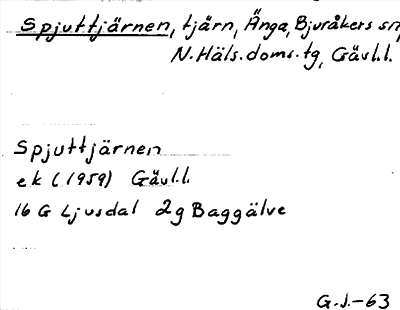 Spjuttjärnen, tjärn, Änga, Bjuråkers sn,
N. Häls. doms. tg, Gävl.l.
Spjuttjärnen
ek (1959) Gävl.l.
16 G Ljusdal 2g Baggälve
G.J.-63